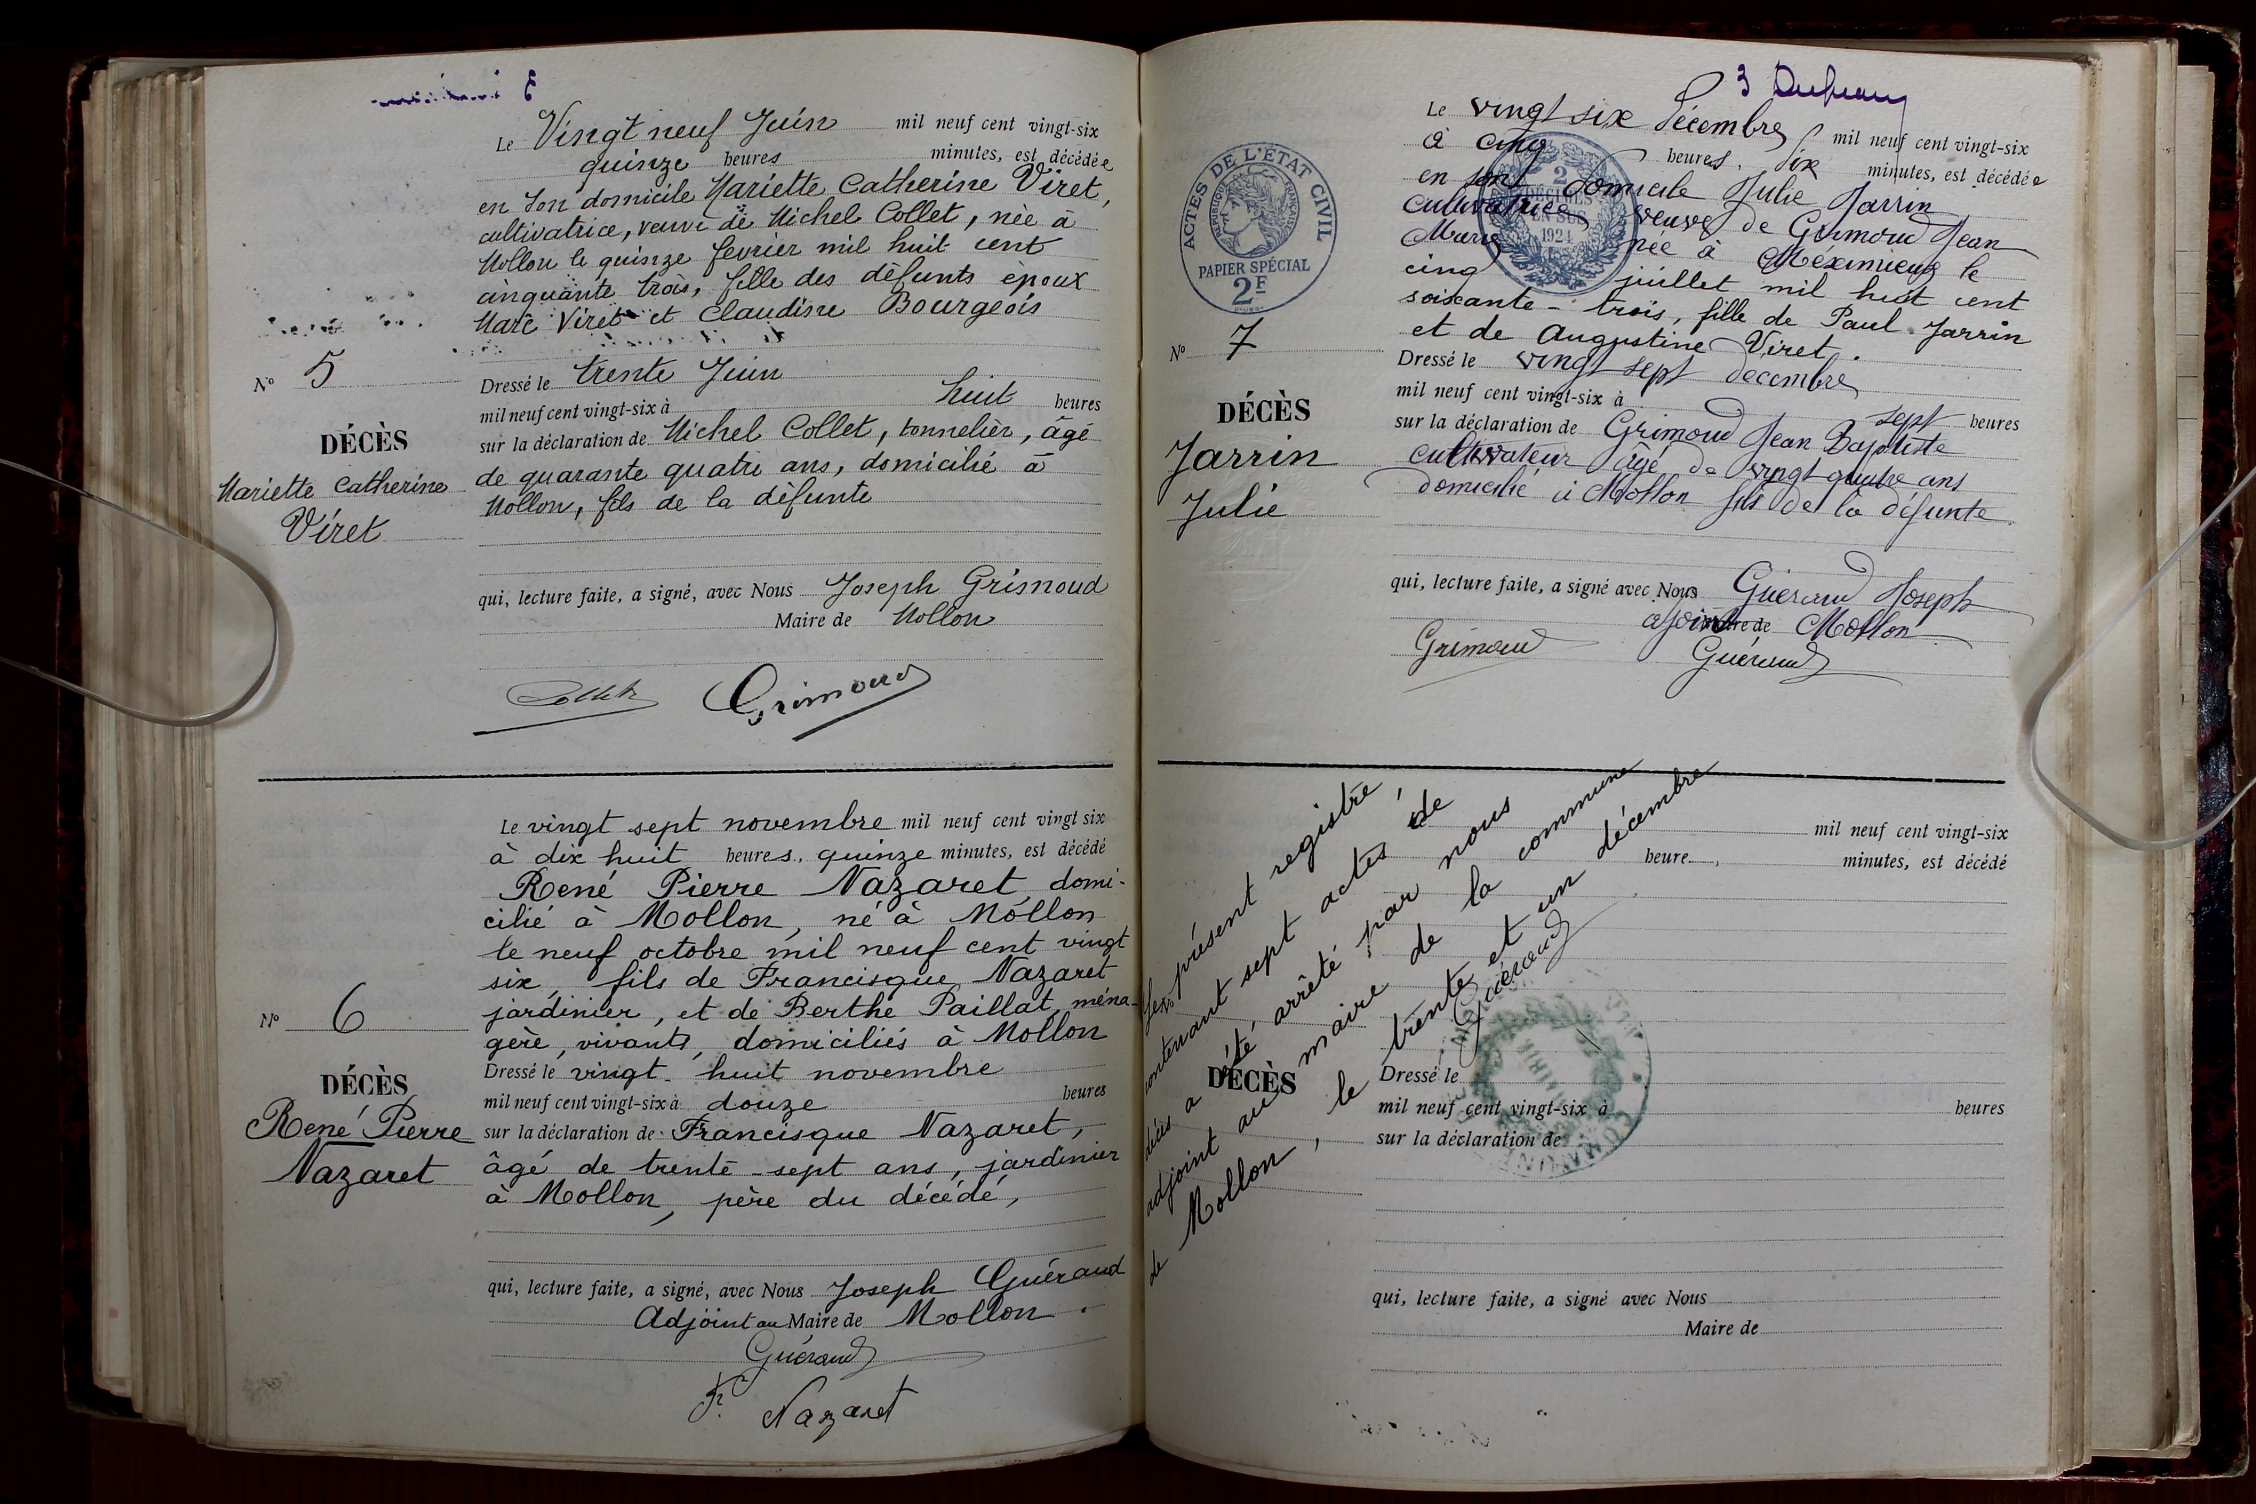 Le Vingt neuf Juin mil neuf cent vingt-six
quinze heures minutes, est décédée
en son domicile Mariette Catherine Viret,
cultivatrice, veuve de Michel Collet, née à
Mollon le quinze fevrier mil huit cent
cinquante trois, fille des défunts époux
Marc Viret et Claudine Bourgeois
N° 5
DÉCÈS
Mariette Catherine
Viret
Dressé le trente Juin
mil neuf cent vingt-six à huit heures
sur la déclaration de Michel Collet, tonnelier, âgé
de quarante quatre ans, domicilié à
Mollon, fils de la défunte
qui, lecture faite, a signé, avec Nous Joseph Grimoud
Maire de Mollon
Collet Grimoud
Le vingt sept novembre mil neuf cent vingt six
à dix huit heures, quinze minutes, est décédé
René Pierre Nazaret, domi-
cilié à Mollon, né à Mollon
le neuf octobre mil neuf cent vingt
six, fils de Francisque Nazaret
jardinier, et de Berthe Paillat, ména-
gère, vivants, domiciliés à Mollon
N° 6
DÉCÈS
René Pierre
Nazaret
Dressé le vingt-huit novembre
mil neuf cent vingt-six à douze heures
sur la déclaration de Francisque Nazaret,
âgé de trente-sept ans, jardinier
à Mollon, père du décédé,
qui, lecture faite, a signé, avec Nous Joseph Guéraud
Adjoint au Maire de Mollon.
Guéraud
Nazaret
3
ACTES DE L'ÉTAT CIVIL
RÉPUBLIQUE FRANÇAISE
PAPIER SPÉCIAL
2F
2
DÉCIMES
EN SUS
1924
Le vingt six Décembre mil neuf cent vingt-six
à cinq heures. dix minutes, est décédée
en son domicile Julie Jarrin
cultivatrice veuve de Grimoud Jean
Marie née à Meximieux le
cinq juillet mil huit cent
soixante-trois, fille de Paul Jarrin
et de Augustine Viret.
N° 7
DÉCÈS
Jarrin
Julie
Dressé le vingt sept decembre
mil neuf cent vingt-six à sept heures
sur la déclaration de Grimoud Jean Baptiste
cultivateur âgé de vingt quatre ans
domicilié à Mollon fils de la défunte.
qui, lecture faite, a signé avec Nous Guéraud Joseph
ajoint Maire de Mollon
Grimoud Guéraud
présent registre,
contenant sept actes de
décès a été arrêté par nous
adjoint au maire de la commune
de Mollon, le trente et un décembre
Guéraud
mil neuf cent vingt-six
heure , minutes, est décédé
DÉCÈS
Dressé le
mil neuf cent vingt-six à heures
sur la déclaration de
qui, lecture faite, a signé avec Nous
Maire de